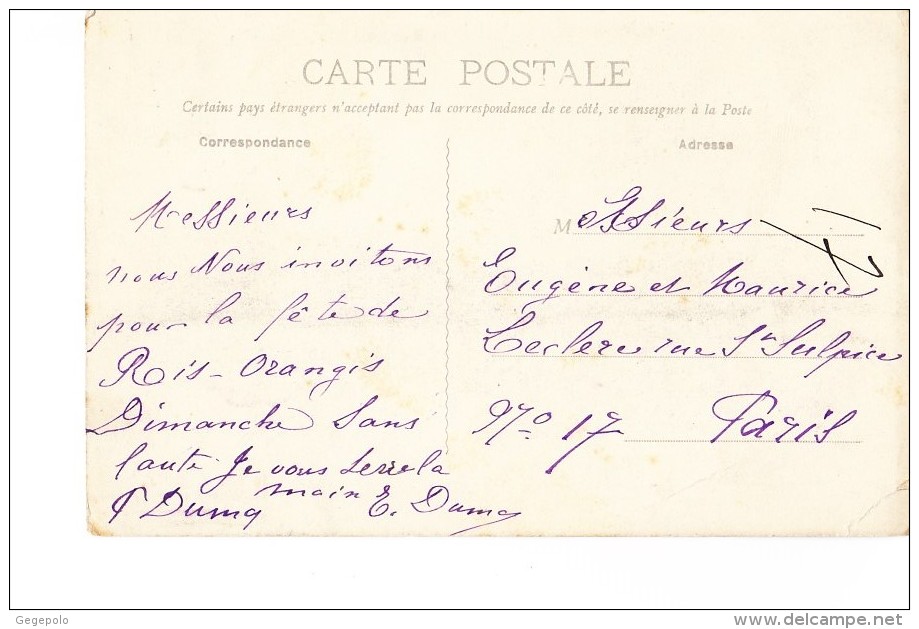 CARTE POSTALE
Certains pays étrangers n'acceptant pas la correspondance de ce côté, se renseigner à la Poste
Correspondance
Messieurs
nous Nous invitons
pour la fête de
Ris-Orangis
Dimanche Sans
faute Je vous serre la
main
P Dumg E. Dumg
Adresse
Messieurs
Eugène et Maurice
Leclerc rue St Sulpice
No 17 Paris
Gegepolo
www.delcampe.net